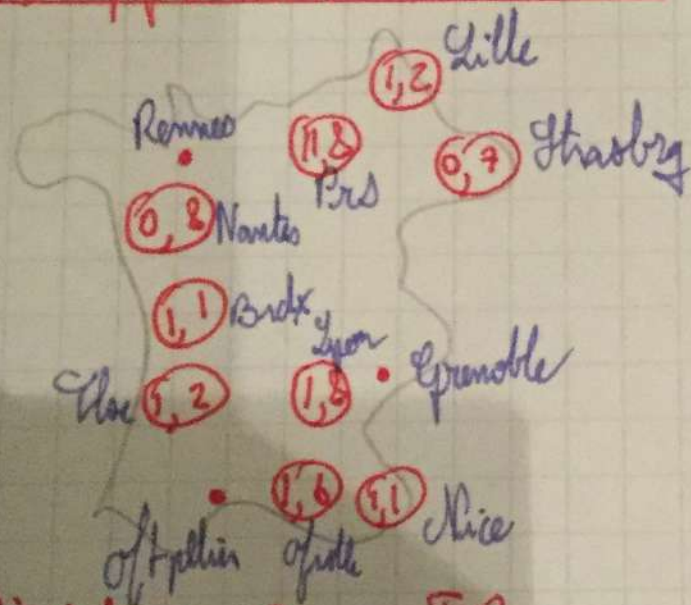 Lille
1,2
Rennes
11,8
Prs
0,7
Strasbrg
0,8
Nantes
1,1
Brdx
Lyon
1,8
Grenoble
Tlse
1,2
1,6
1,1
Nice
Mtpellier
Mrslle